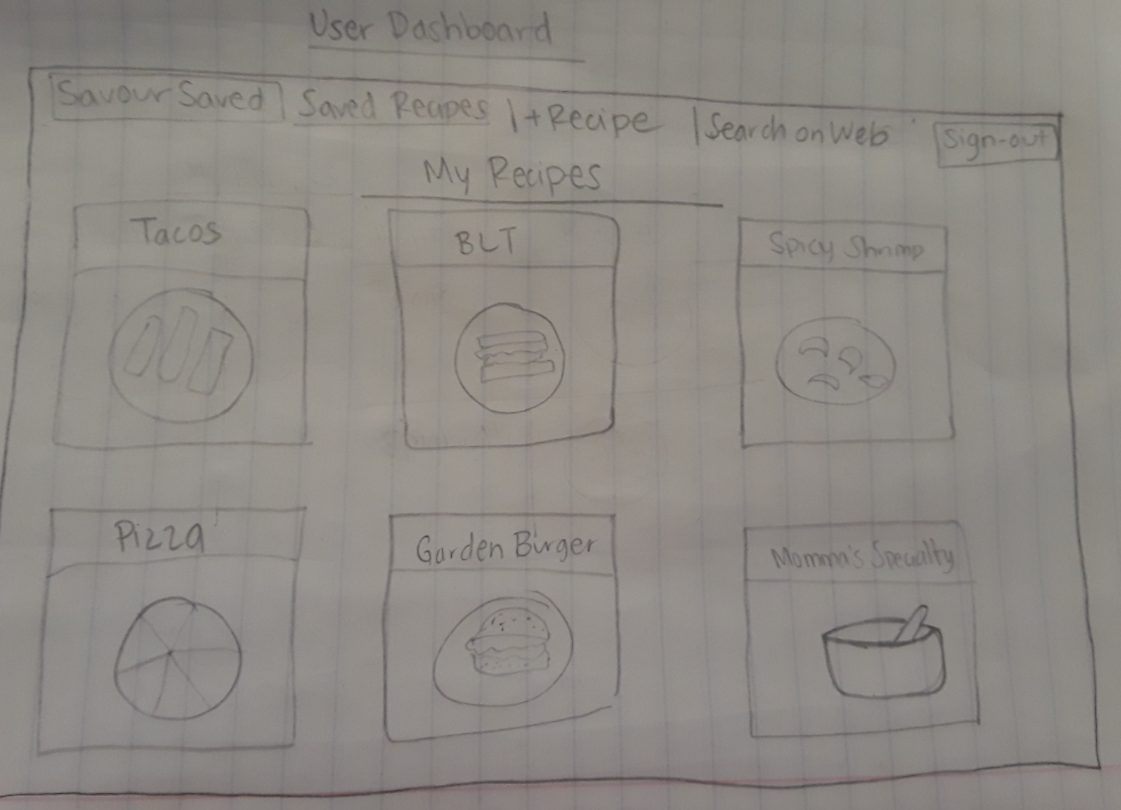 User Dashboard
Savour Saved | Saved Recipes | + Recipe | Search on Web Sign-out
My Recipes
Tacos BLT Spicy Shrimp
Pizza Garden Burger Momma's Specialty